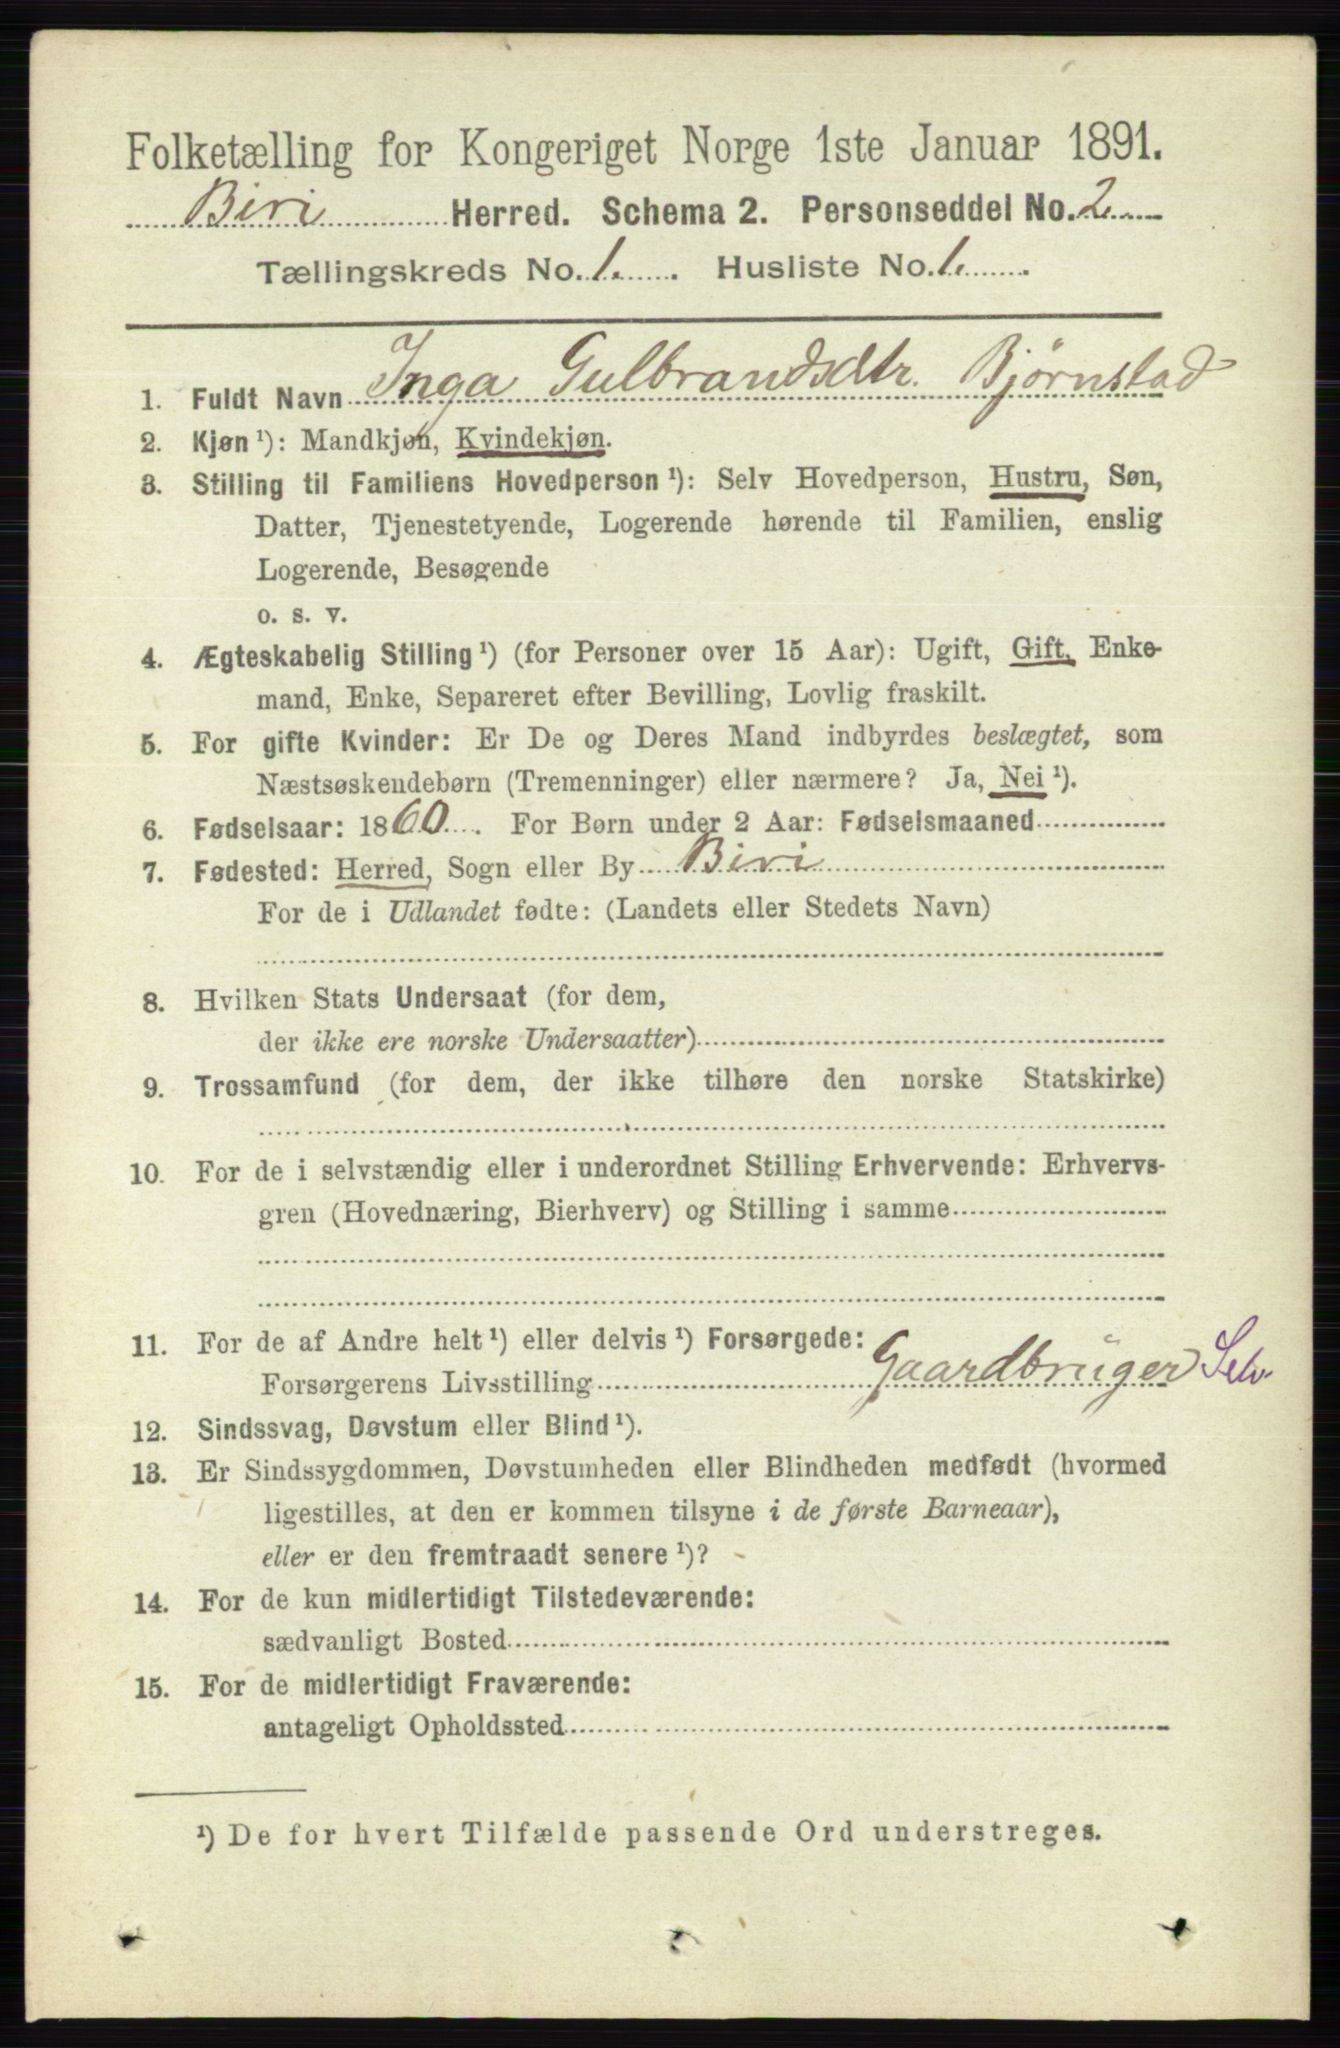 Folketælling for Kongeriget Norge 1ste Januar 1891.
Biri Herred. Schema 2. Personseddel No. 2
Tællingskreds No. 1. Husliste No. 1.
1. Fuldt Navn Inga Gulbrandsdtr. Bjørnstad
2. Kjøn ¹): Mandkjøn, Kvindekjøn.
3. Stilling til Familiens Hovedperson ¹): Selv Hovedperson, Hustru, Søn,
Datter, Tjenestetyende, Logerende hørende til Familien, enslig
Logerende, Besøgende
o. s. v.
4. Ægteskabelig Stilling ¹) (for Personer over 15 Aar): Ugift, Gift, Enke-
mand, Enke, Separeret efter Bevilling, Lovlig fraskilt.
5. For gifte Kvinder: Er De og Deres Mand indbyrdes beslægtet, som
Næstsøskendebørn (Tremenninger) eller nærmere? Ja, Nei ¹).
6. Fødselsaar: 1860. For Børn under 2 Aar: Fødselsmaaned
7. Fødested: Herred, Sogn eller By Biri
For de i Udlandet fødte: (Landets eller Stedets Navn)
8. Hvilken Stats Undersaat (for dem,
der ikke ere norske Undersaatter)
9. Trossamfund (for dem, der ikke tilhøre den norske Statskirke)
10. For de i selvstændig eller i underordnet Stilling Erhvervende: Erhvervs-
gren (Hovednæring, Bierhverv) og Stilling i samme
11. For de af Andre helt ¹) eller delvis ¹) Forsørgede:
Forsørgerens Livsstilling Gaardbrüger Selv.
12. Sindssvag, Døvstum eller Blind ¹).
13. Er Sindssygdommen, Døvstumheden eller Blindheden medfødt (hvormed
ligestilles, at den er kommen tilsyne i de første Barneaar),
eller er den fremtraadt senere ¹)?
14. For de kun midlertidigt Tilstedeværende:
sædvanligt Bosted
15. For de midlertidigt Fraværende:
antageligt Opholdssted
¹) De for hvert Tilfælde passende Ord understreges.